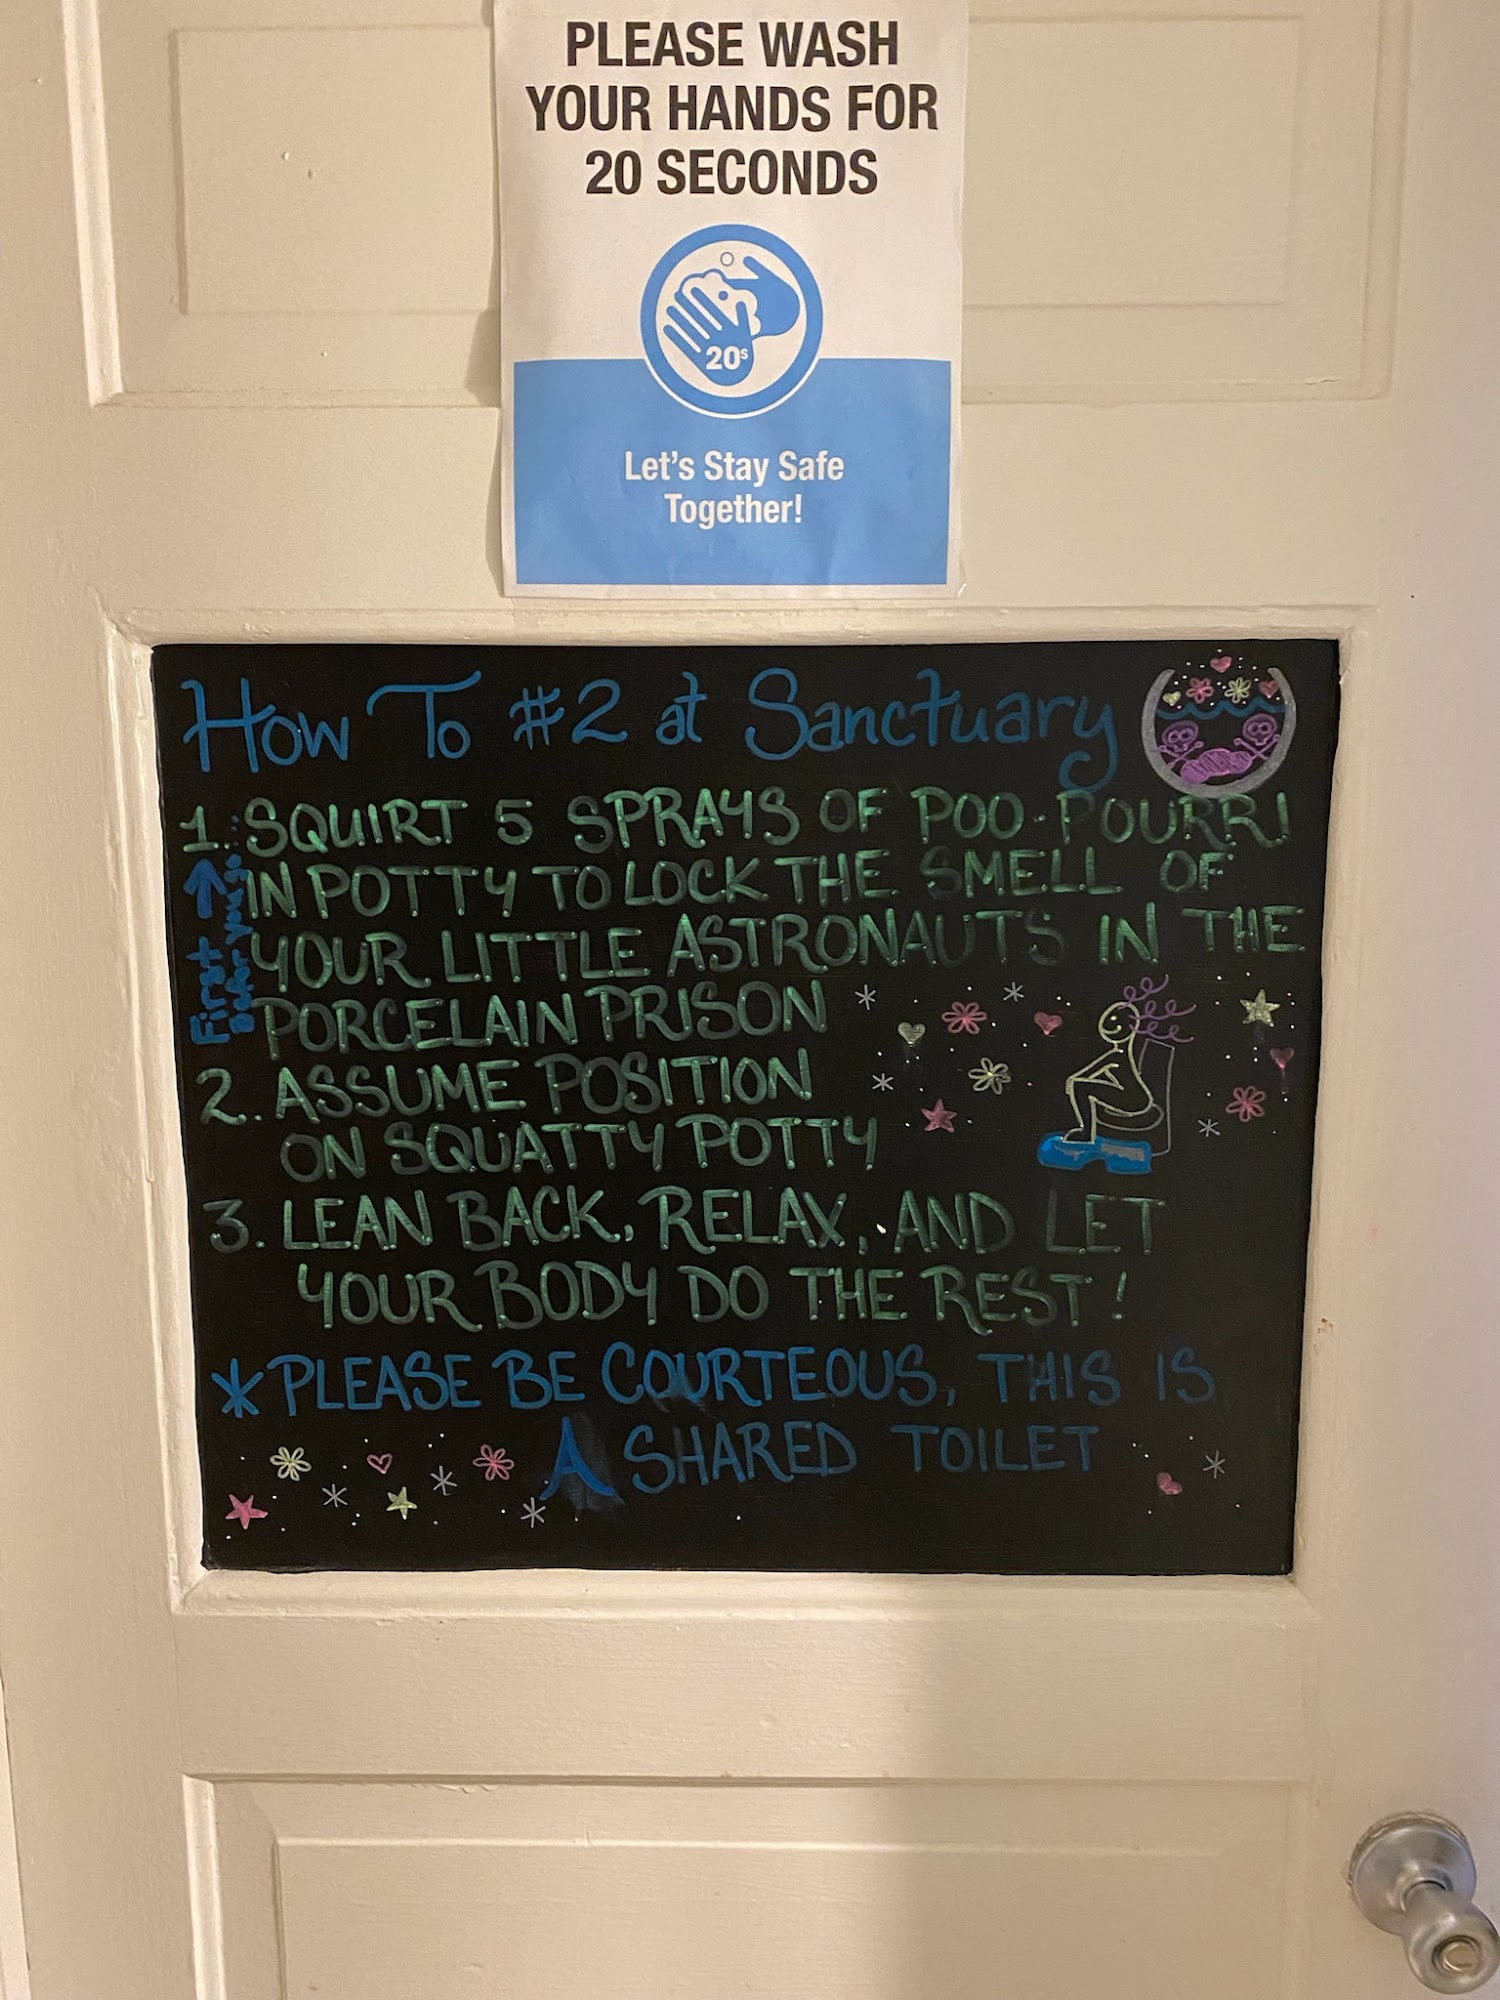 PLEASE WASH
YOUR HANDS FOR
20 SECONDS
20s
Let's Stay Safe
Together!
How To #2 at Sanctuary
1. SQUIRT 5 SPRAYS OF POO-POURRI
IN POTTY TO LOCK THE SMELL OF
YOUR LITTLE ASTRONAUTS IN THE
PORCELAIN PRISON
First
2. ASSUME POSITION
ON SQUATTY POTTY
3. LEAN BACK, RELAX, AND LET
YOUR BODY DO THE REST!
*PLEASE BE COURTEOUS, THIS IS
A SHARED TOILET